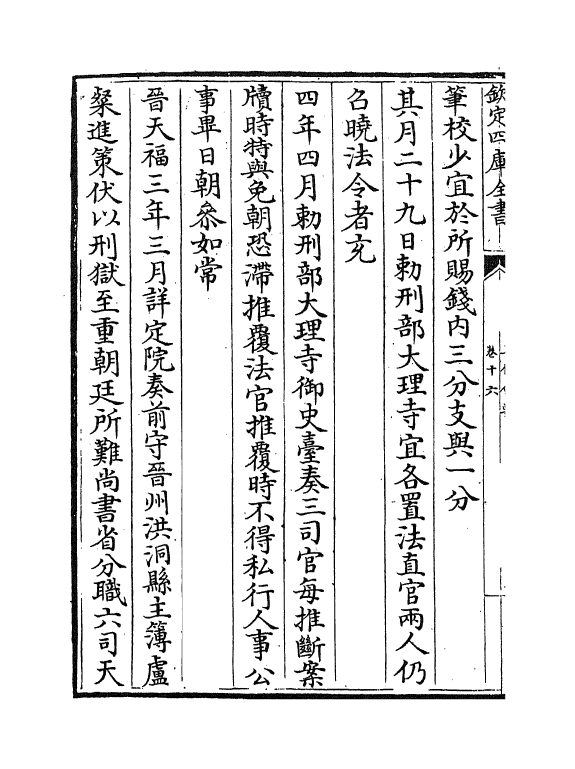 欽定四庫全書
卷十六
筆校少宜於所賜錢内三分支與一分
其月二十九日勅刑部大理寺宜各置法直官兩人仍
召曉法令者充
四年四月勅刑部大理寺御史臺奏三司官每推斷案
牘時特與免朝恐滯推覆法官推覆時不得私行人事公
事畢日朝叅如常
晉天福三年三月詳定院奏前守晉州洪洞縣主簿盧
粲進策伏以刑獄至重朝廷所難尚書省分職六司天